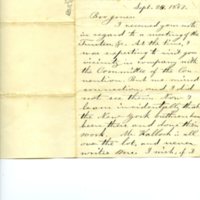 Sept. 28, 1882.
Bro. Jones
I received your note
in regard to a meeting of the
Trustees &c. At the time, I
was expecting to visit your
vicinity in company with
the Committee of the Con-
vention. But we missed
connection, and I did
not see them. Now I
learn incidentally that
the New York brethren have
been there and done their
work. Mr. Kallock is all
over the lot, and never
writes me. I wish, if I